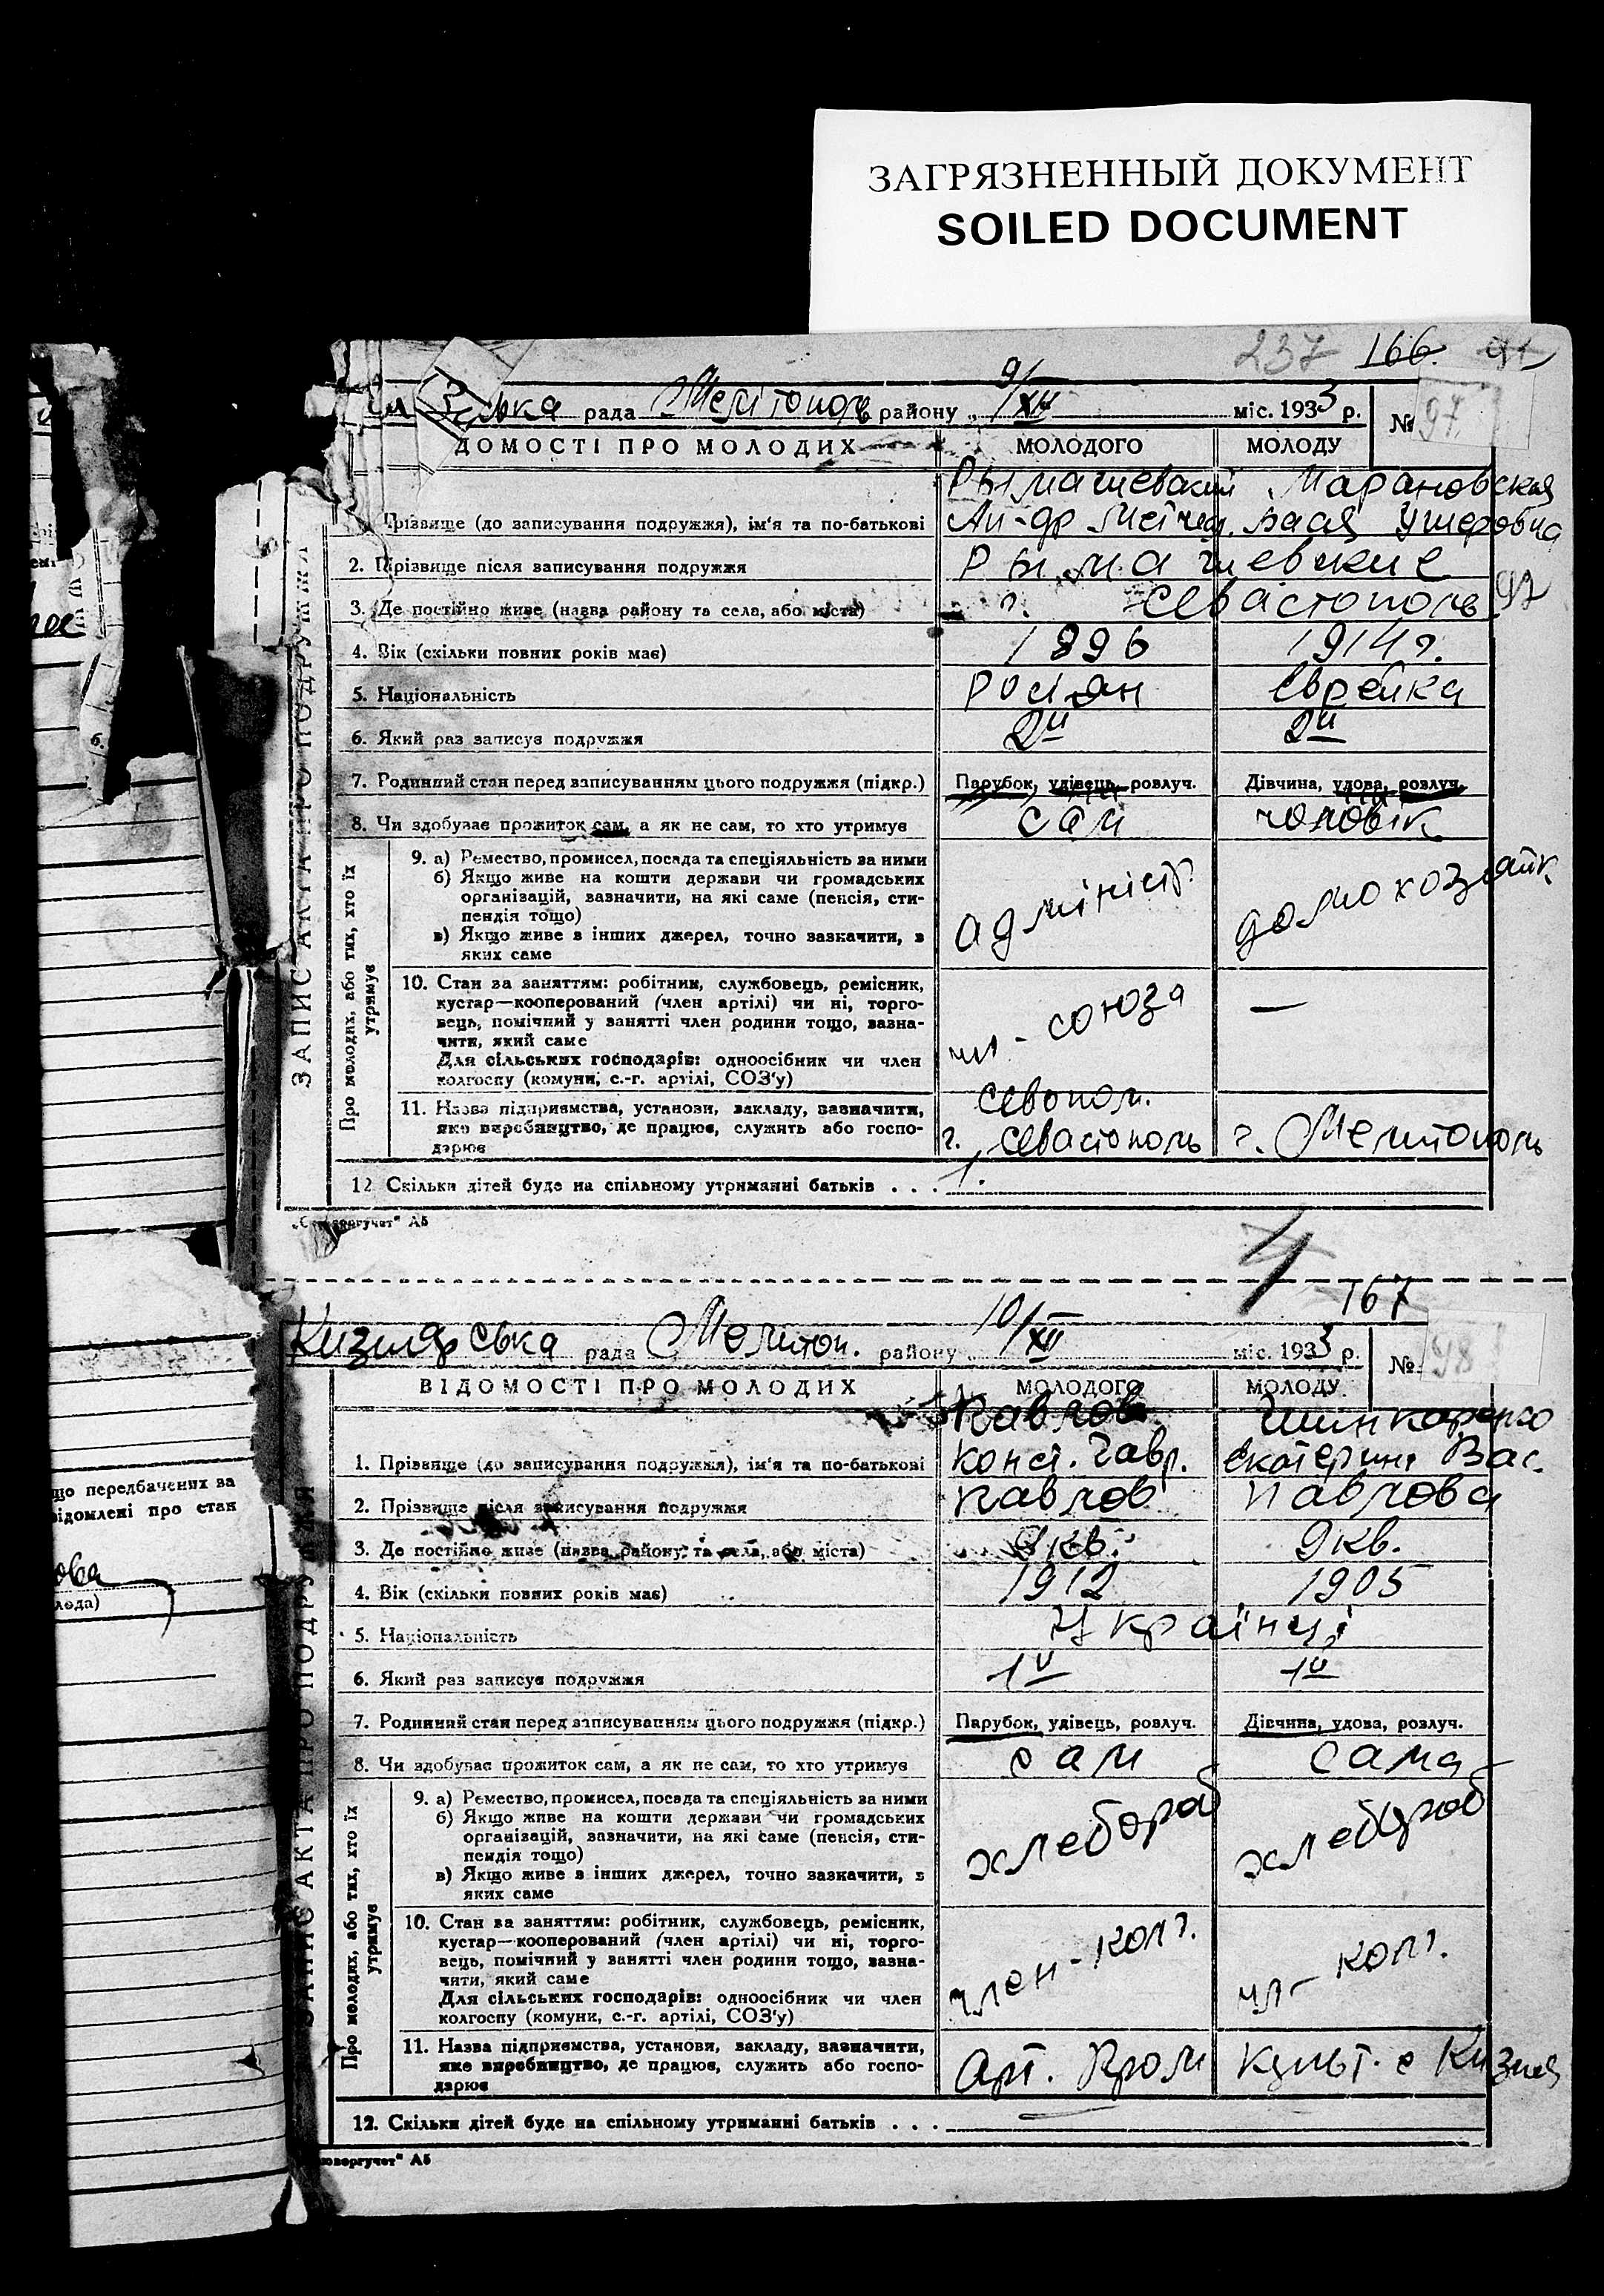 ЗАГРЯЗНЕННЫЙ ДОКУМЕНТ
SOILED DOCUMENT
237 166.
ька рада Мелітополь району „ 9/XII міс. 1933 р. № 97
ДОМОСТІ ПРО МОЛОДИХ МОЛОДОГО МОЛОДУ
Рымашевский Марановская
Прізвище (до записування подружжя), ім'я та по-батькові Ушеровна
2. Прізвище після записування подружжя Рымашевские
3. Де постійно живе (назва району та села, або міста) г. Севастополь 97
4. Вік (скільки повних років має) 1896 1914 г.
5. Національність Росіян Еврейка
6. Який раз записує подружжя 2й 2й
7. Родинний стан перед записуванням цього подружжя (підкр.) Парубок, удівець, розлуч. Дівчина, удова, розлуч.
8. Чи здобуває прожиток сам, а як не сам, то хто утримує сам чоловік
ЗАПИС АКТА ПРО ПОДРУЖЖЯ
Про молодих, або тих, хто їх утримує
9. а) Ремество, промисел, посада та спеціяльність за ними
б) Якщо живе на кошти держави чи громадських
організацій, зазначити, на які саме (пенсія, сти-
пендія тощо)
в) Якщо живе з інших джерел, точно зазначити, з
яких саме
адмініст. домохозяйк
10. Стан за заняттям: робітник, службовець, ремісник,
кустар—кооперований (член артілі) чи ні, торго-
вець, помічний у занятті член родини тощо, зазна-
чити, який саме
Для сільських господарів: одноосібник чи член
колгоспу (комуни, с.-г. артілі, СОЗ'у)
чл - союза —
11. Назва підприємства, установи, закладу, зазначити,
яке виробництво, де працює, служить або госпо-
дарює
г. Севастополь г. Мелитополь
12 Скільки дітей буде на спільному утриманні батьків . . . 1.
А5
4
167
Кизиярська рада Мелитоп. району „ 10/XII міс. 1933 р. № 98
ВІДОМОСТІ ПРО МОЛОДИХ МОЛОДОГО МОЛОДУ
Павлов Шинкаренко
1. Прізвище (до записування подружжя), ім'я та по-батькові Конст. Гавр. Екатерина Вас.
2. Прізвище після записування подружжя Павлов Павлова
3. Де постійно живе (назва району та села, або міста) 9 кв. 9 кв.
4. Вік (скільки повних років має) 1912 1905
5. Національність Українці
6. Який раз записує подружжя 1й 1й
7. Родинний стан перед записуванням цього подружжя (підкр.) Парубок, удівець, розлуч. Дівчина, удова, розлуч.
8. Чи здобуває прожиток сам, а як не сам, то хто утримує сам сама
ЗАПИС АКТА ПРО ПОДРУ ЖЯ
Про молодих, або тих, хто їх утримує
9. а) Ремество, промисел, посада та спеціяльність за ними
б) Якщо живе на кошти держави чи громадських
організацій, зазначити, на які саме (пенсія, сти-
пендія тощо)
в) Якщо живе з інших джерел, точно зазначити, з
яких саме
хлебороб хлебороб
10. Стан за заняттям: робітник, службовець, ремісник,
кустар—кооперований (член артілі) чи ні, торго-
вець, помічний у занятті член родини тощо, зазна-
чити, який саме
Для сільських господарів: одноосібник чи член
колгоспу (комуни, с.-г. артілі, СОЗ'у)
член - колг. чл - колг.
11. Назва підприємства, установи, закладу, зазначити,
яке виробництво, де працює, служить або госпо-
дарює
Арт. Пром Культ. с Кизия
12. Скільки дітей буде на спільному утриманні батьків . . . —
А5
що передбачених за
відомлені про стан
ова